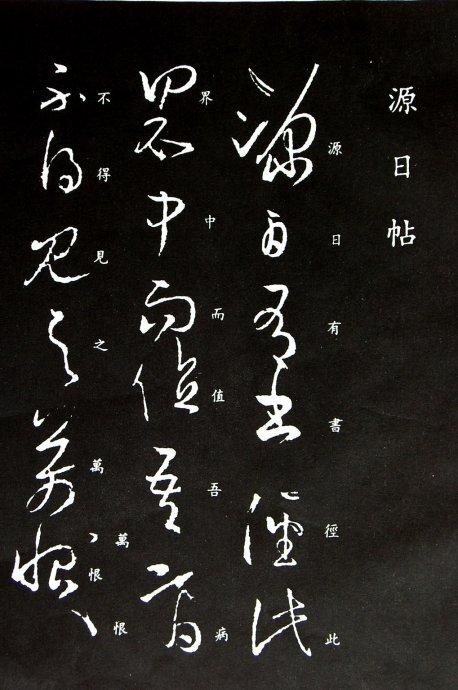 源日帖
源日有書徑此
界中而值吾病
不得見之萬萬恨恨